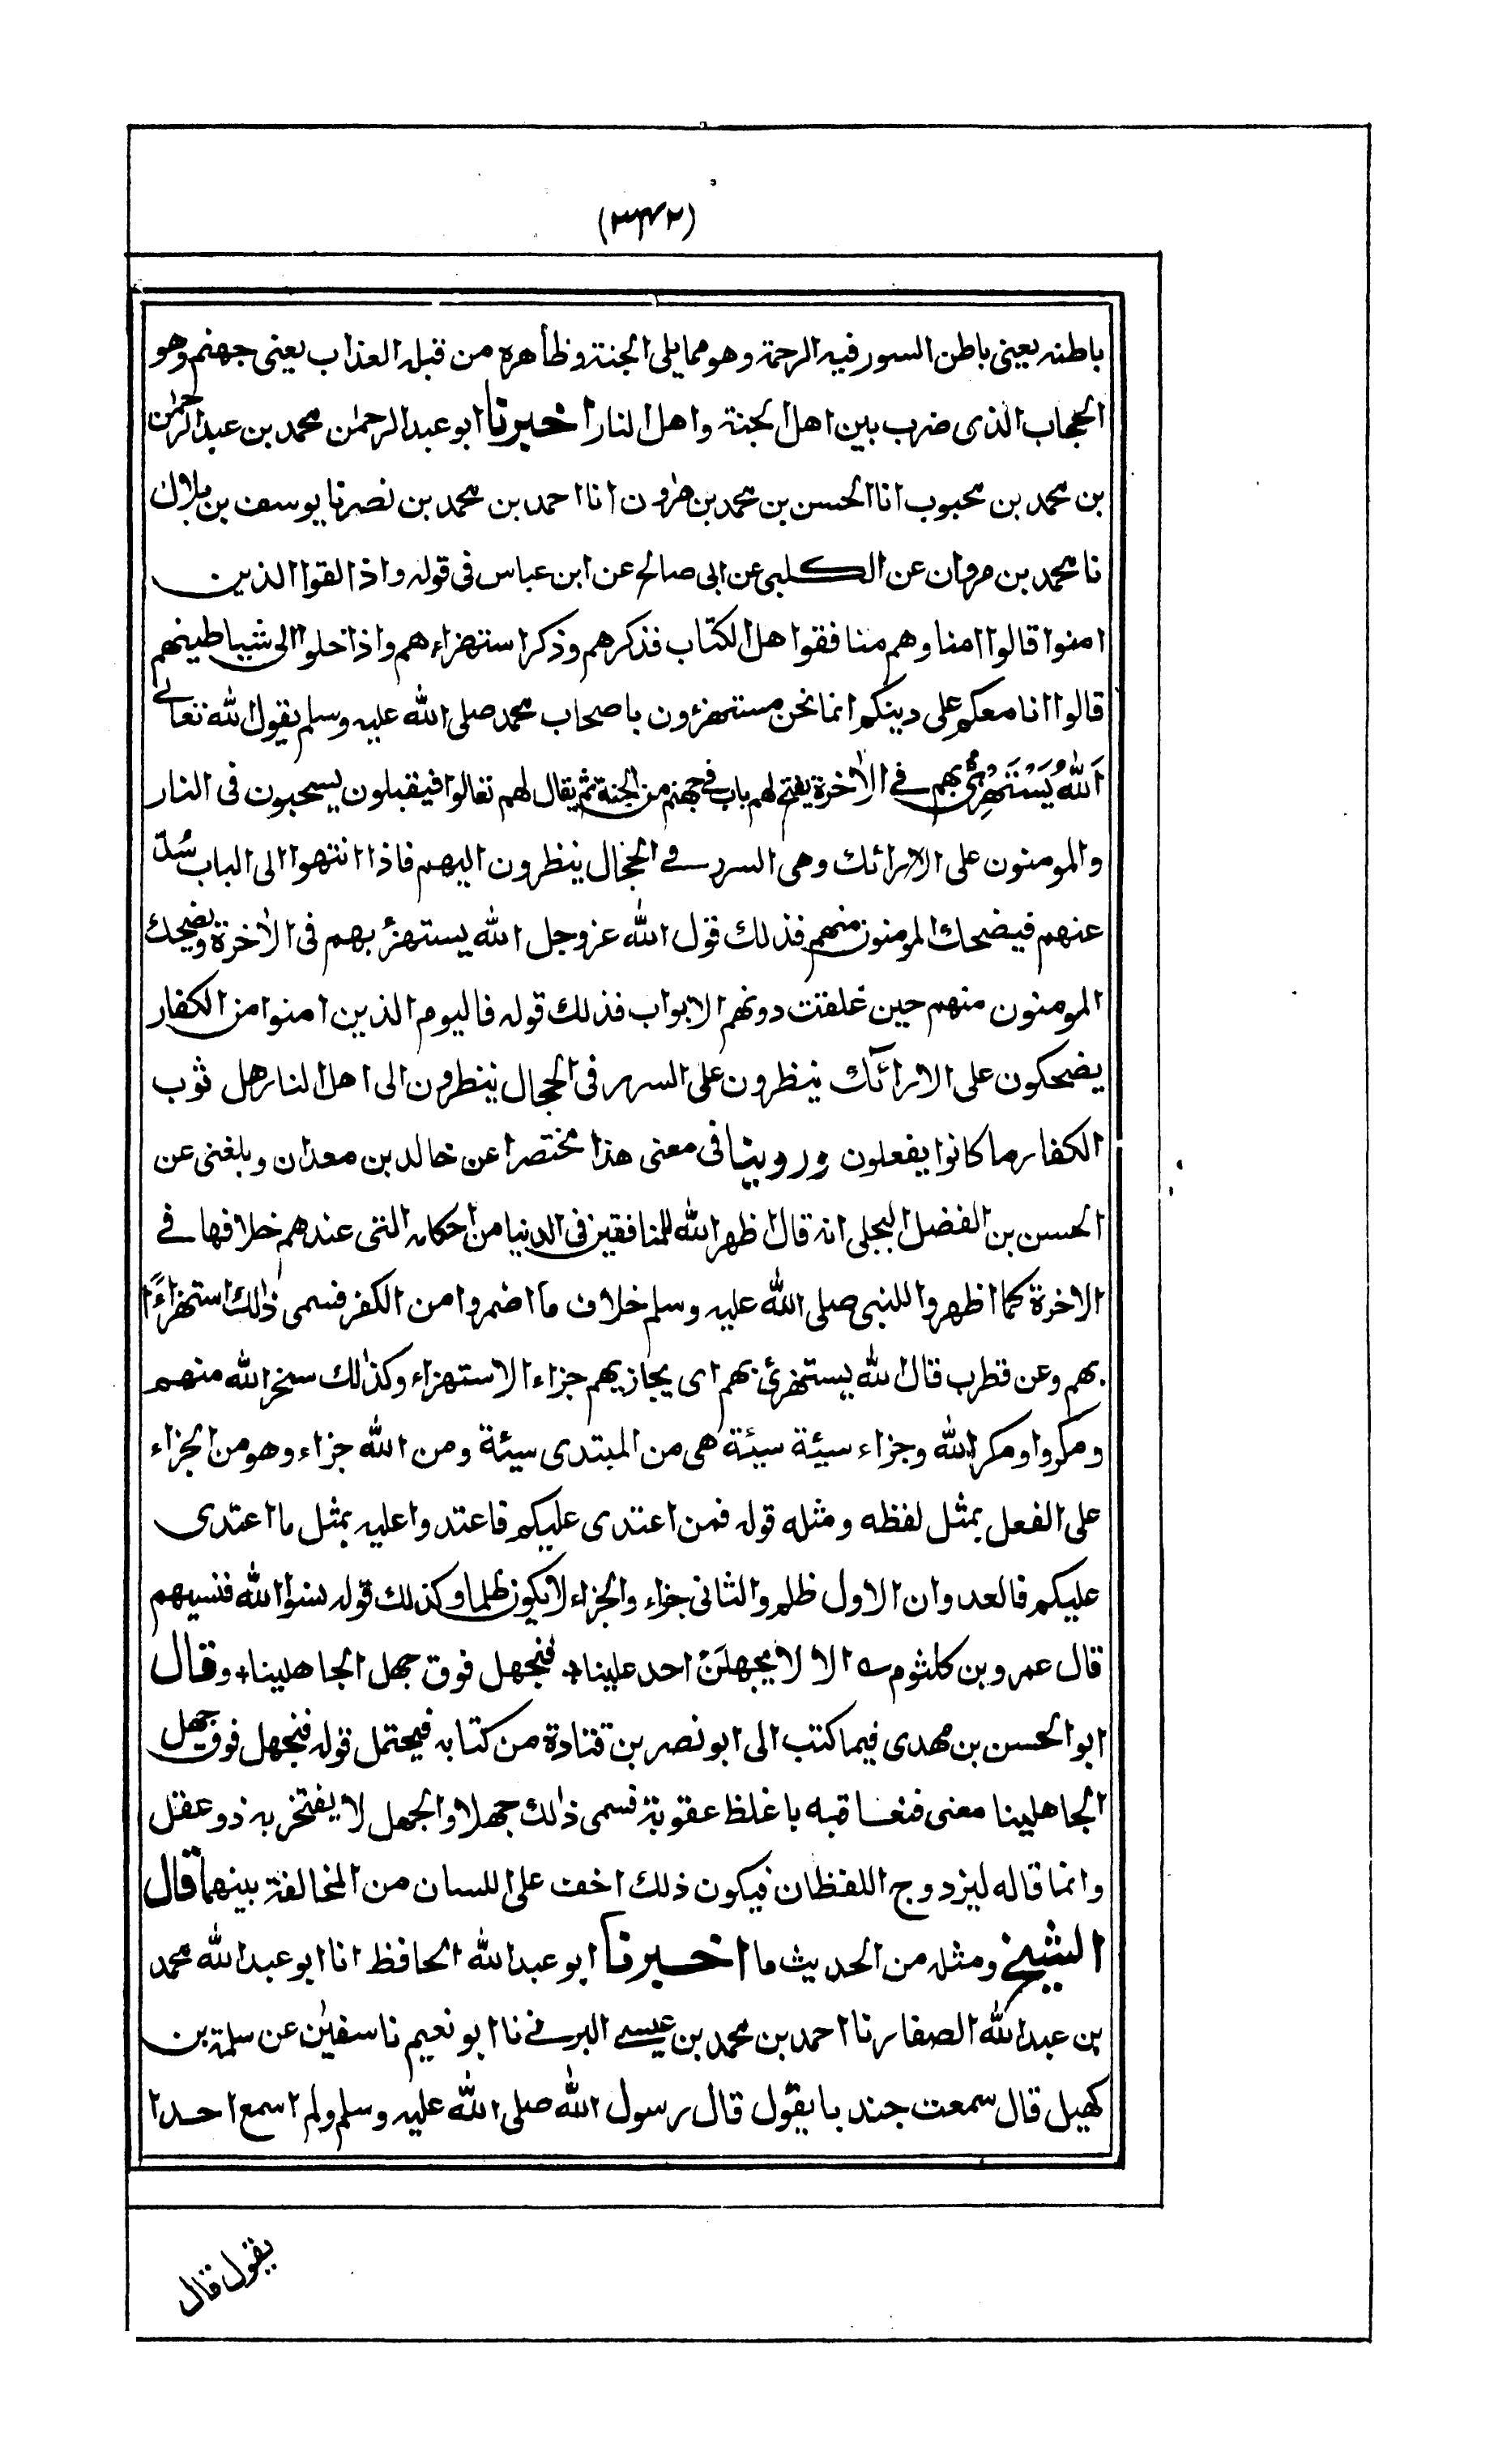 (٣٤٢)
باطنه يعنى باطن السور فيه الرحمة وهو مما يلى الجنة وظاهره من قبله العذاب يعنى جهنم وهو
الحجاب الذى ضرب بين اهل الجنة واهل النار اخبرنا ابو عبد الرحمٰن محمد بن عبد الرحمٰن
بن محمد بن محبوب انا الحسن بن محمد بن هٰرون انا احمد بن محمد بن نصر نا يوسف بن بلال
نا محمد بن مروان عن الكلبى عن ابى صالح عن ابن عباس فى قوله واذا لقوا الذين
امنوا قالوا امنا وهم منافقوا هل الكتاب فذكرهم وذكر استهزاءهم واذا خلوا الى شياطينهم
قالوا انا معكم على دينكم انما نحن مستهزؤن باصحاب محمد صلى الله عليه وسلم يقول الله تعالے
اَللهُ يَسْتَهْزِئُ بهم فے الاٰخرة يفتح لهم باب فے جهنم من الجنة ثم يقال لهم تعالوا فيقبلون يسحبون فى النار
والمومنون على الارائك وهى السرر فے الحجال ينظرون اليهم فاذا انتهوا الى الباب سُدّ
عنهم فيضحك المومنون منهم فذلك قول الله عز وجل الله يستهزئ بهم فى الاٰخرة ويضحك
المومنون منهم حين غلقت دونهم الابواب فذلك قوله فاليوم الذين امنوا من الكفار
يضحكون على الارآئك ينظرون على السرر فى الحجال ينظرون الى اهل النار هل ثوب
الكفار ما كانوا يفعلون وروينا فى معنى هذا مختصرا عن خالد بن معدان وبلغنى عن
الحسن بن الفضل البجلى انه قال اظهر الله للمنافقين فى الدنيا من احكامه التى عندهم خلافها فے
الاخرة كما اظهروا للنبى صلى الله عليه وسلم خلاف ما اضمروا من الكفر فسمى ذٰلك استهزاءً ا
بهم وعن قطرب قال الله يستهزئ بهم اى يجازيهم جزاء الاستهزاء وكذٰلك سخر الله منهم
ومكروا ومكر الله وجزاء سيئة سيئة هى من المبتدى سيئة ومن الله جزاء وهو من الجزاء
على الفعل بمثل لفظه ومثله قوله فمن اعتدى عليكم فاعتدوا عليه بمثل ما اعتدى
عليكم فالعدوان الاول ظلم والثانى جزاء والجزاء لا يكون ظلما وكذلك قوله نسوا الله فنسيهم
قال عمرو بن كلثوم ؎ الا لا يجهلَنْ احد علينا + فنجهل فوق جهل الجاهلينا + وقال
ابو الحسن بن مهدى فيما كتب الى ابو نصر بن قتادة من كتابه فيحتمل قوله فنجهل فوق جهل
الجاهلينا معنى فنعاقبه باغلظ عقوبة فسمى ذٰلك جهلا والجهل لا يفتخر به ذو عقل
وانما قاله ليزدوج اللفظان فيكون ذلك اخف على اللسان من المخالفة بينهما قال
الشيخ ومثله من الحديث ما اخبرنا ابو عبد الله الحافظ انا ابو عبد الله محمد
بن عبد الله الصفار نا احمد بن محمد بن عيسے البرتے نا ابو نعيم نا سفيٰن عن سلمة بن
كهيل قال سمعت جندبا يقول قال رسول الله صلى الله عليه وسلم ولم اسمع احدا
يقول قال